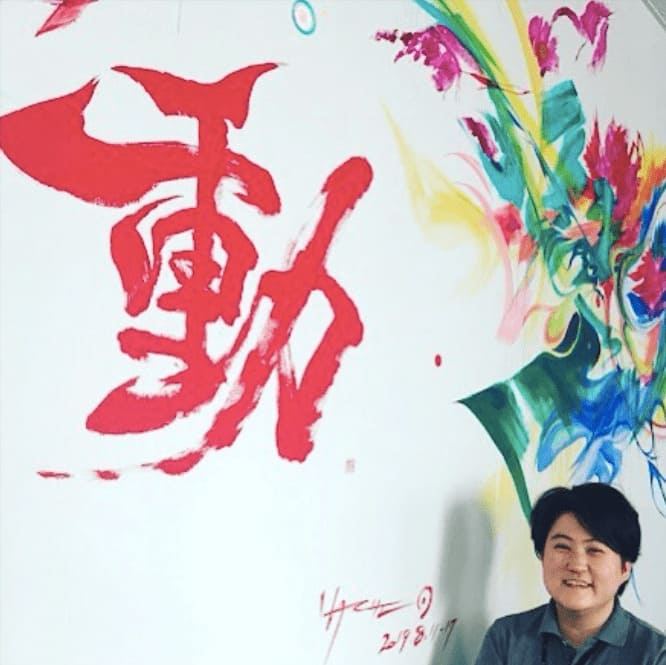 動
2019.8.11-17